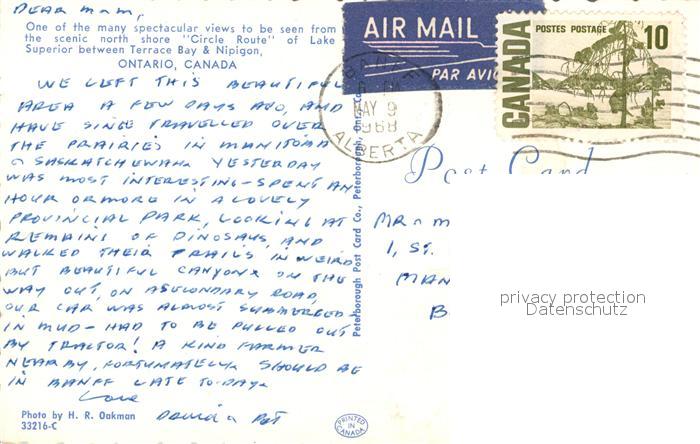 DEAR M & M,
One of the many spectacular views to be seen from
the scenic north shore "Circle Route" of Lake
Superior between Terrace Bay & Nipigon,
ONTARIO, CANADA
WE LEFT THIS BEAUTIFUL
AREA A FEW DAYS AGO, AND
HAVE SINCE TRAVELLED OVER
THE PRAIRIES IN MANITOBA
& SASKATCHEWAN. YESTERDAY
WAS MOST INTERESTING - SPENT AN
HOUR OR MORE IN A LOVELY
PROVINCIAL PARK, LOOKING AT
REMAINS OF DINOSAUS, AND
WALKED THEIR TRAILS IN WEIRD
BUT BEAUTIFUL CANYONS ON THE
WAY OUT, ON A SECONDARY ROAD,
OUR CAR WAS ALMOST SUMMERGED
IN MUD - HAD TO BE PULLED OUT
BY TRACTOR! A KIND FARMER
NEARBY, FORTUNATELY. SHOULD BE
IN BANFF LATE TO-DAY.
Love
David & Pat
Photo by H. R. Oakman
33216-C
PRINTED IN CANADA
Peterborough Post Card Co., Peterborough, Ont., Ca
AIR MAIL
PAR AVIO
MAY 9
1968
ALBERTA
CANADA
POSTES POSTAGE
10
Post Card
MR & M
1, ST.
MAN
B
privacy protection
Datenschutz